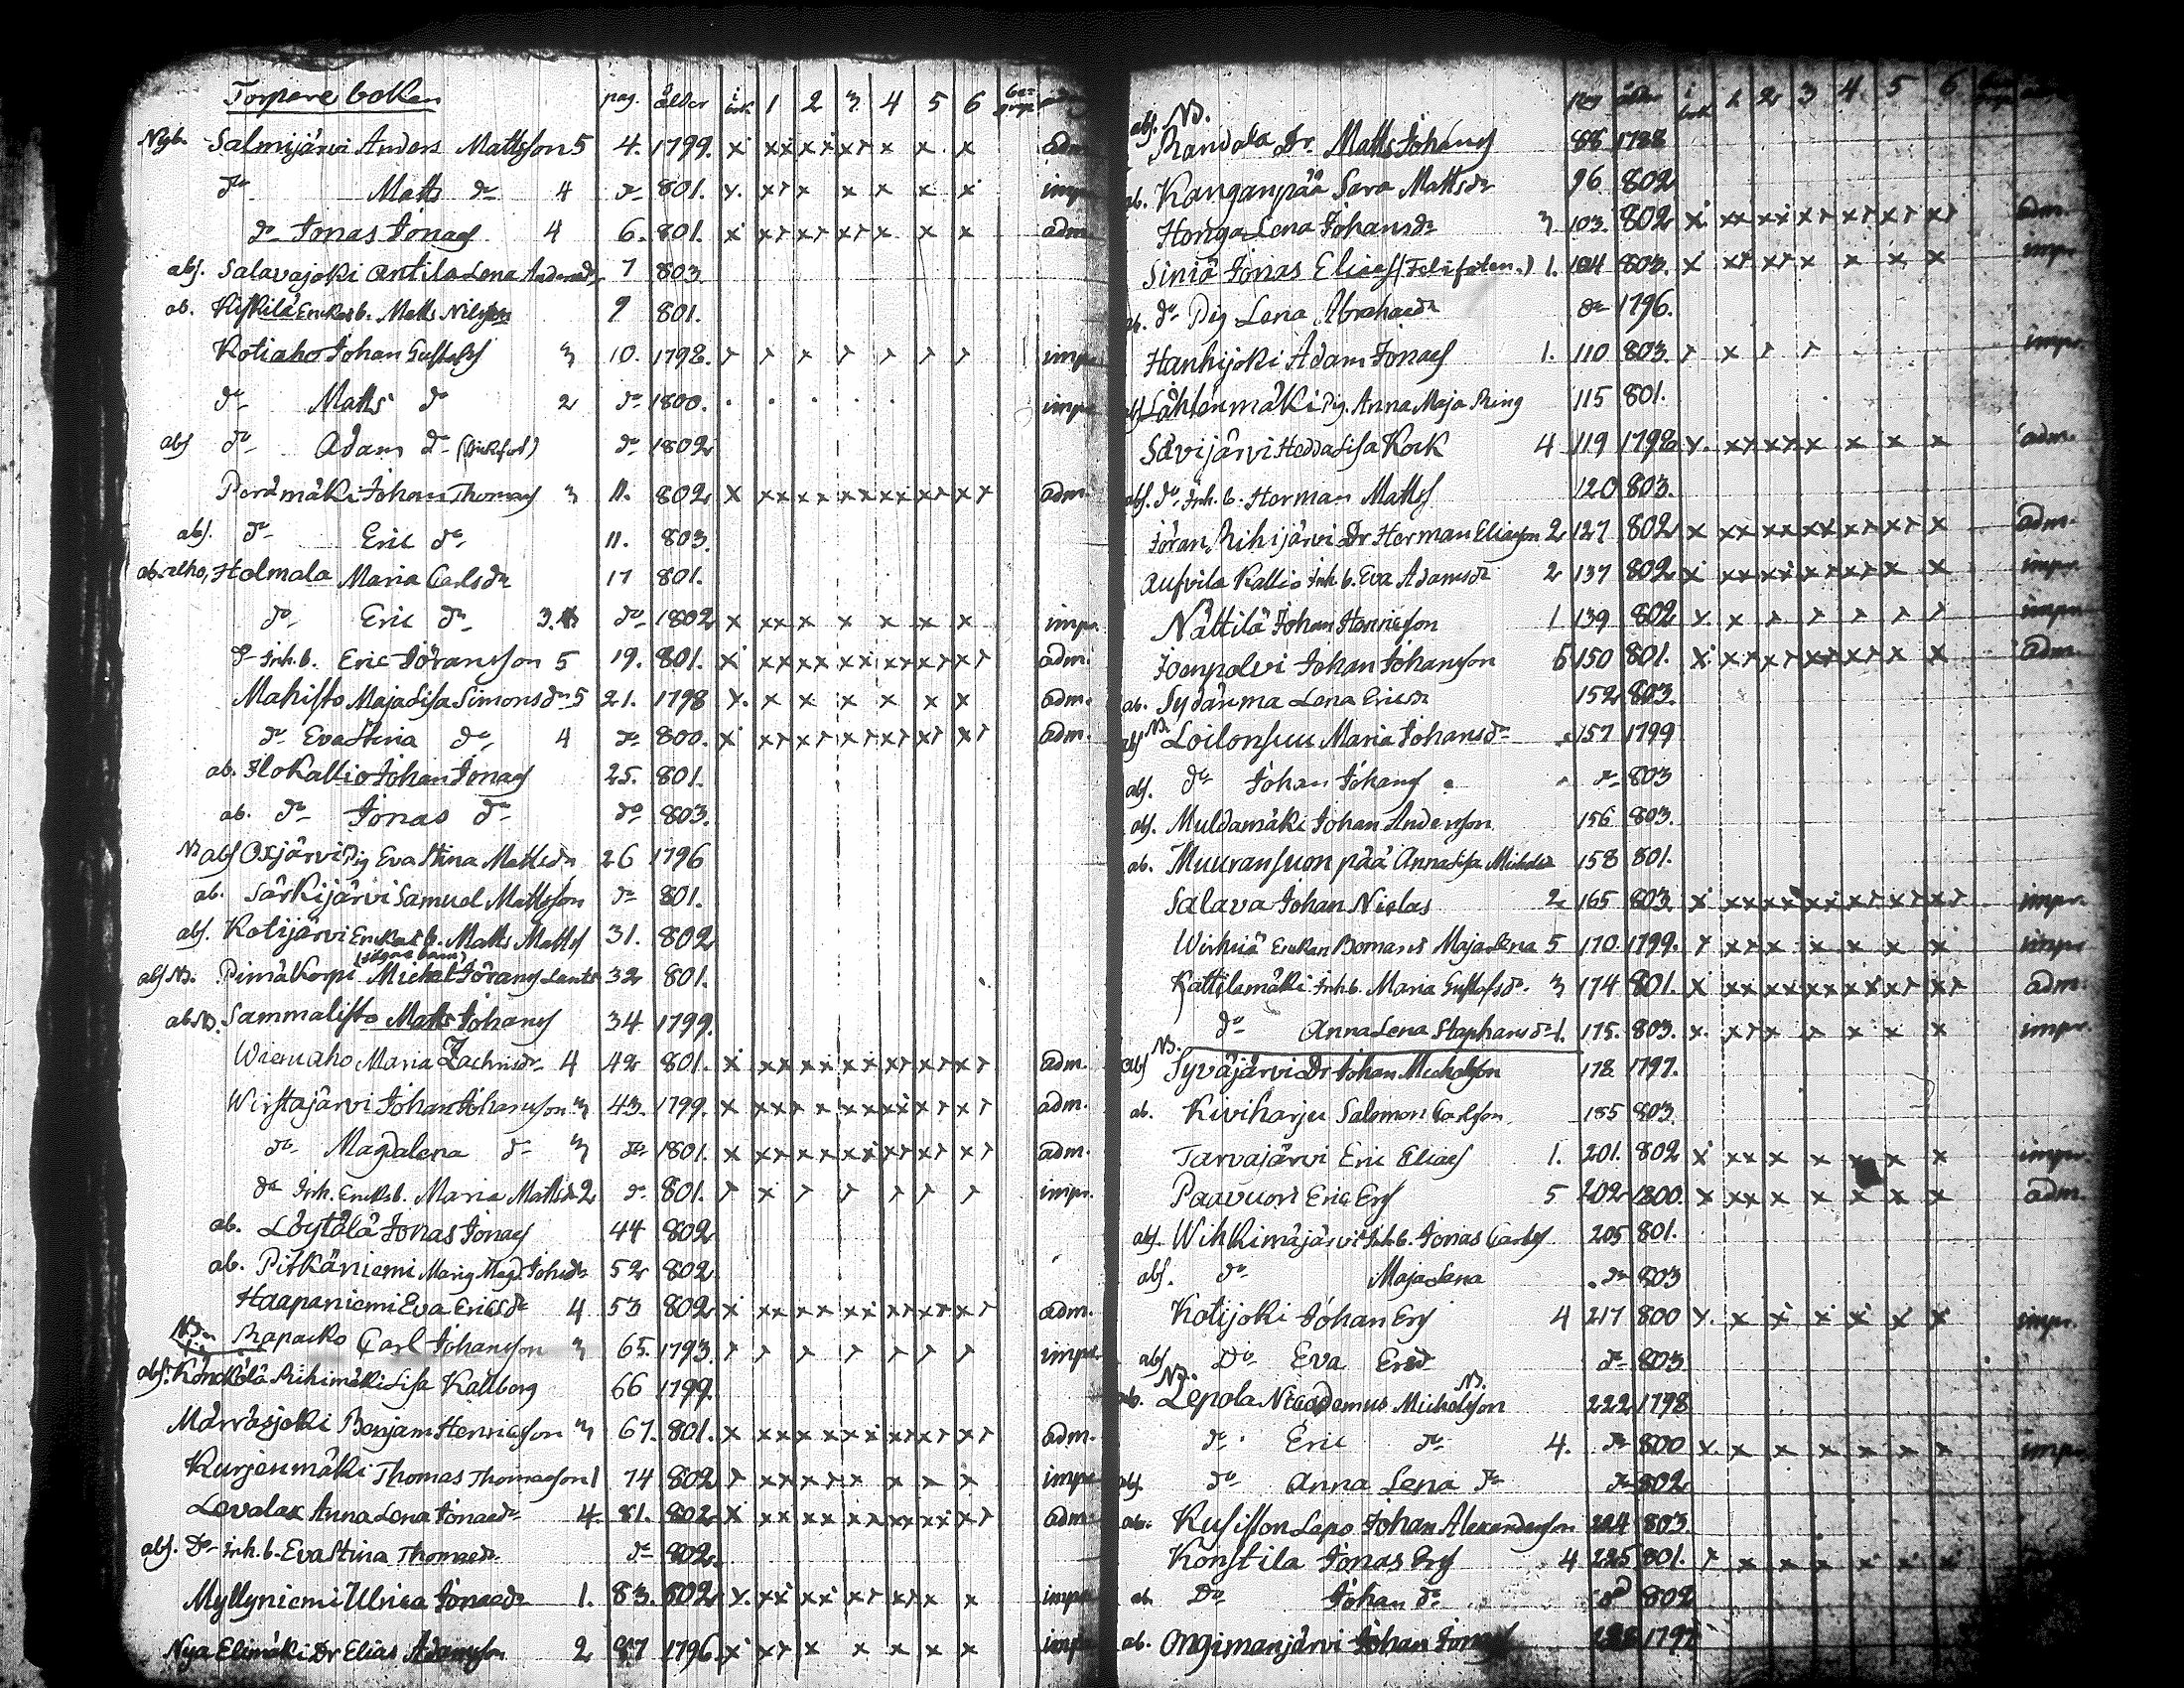 Torpare boken pag. ålder i bok 1 2 3 4 5 6 be- grep.
Nyb. Salmijärvi Anders Mattsson 5 4. 1799. x xx xx xx x x x adm.
do Matts do 4 do 801. x. xx x x x x x impr.
do Jonas Jonass 4 6. 801. x xx xx xx x x x adm.
abs. Salavajoki Antila Lena Andersdr 7 803.
ab. Kiskilä Enkas b. Matts Nilsson 9 801.
Kotiaho Johan Gustafss 3 10. 1798. impr.
do Matts do 2 do 1800. impr.
abs do Adam do do 1802
Perämäki Johan Thomass 3 11. 802 x xx xx xx xx xx xx adm.
abs. do Eric do 11. 803.
ab. alho, Holmala Maria Carlsdr 17 801.
do Eric do 3. do 1802 x xx x x x x x impr.
do Inh. b. Eric Jöransson 5 19. 801. x xx xx xx xx xx xx adm.
Mahisto Maja Lisa Simonsdr 5 21. 1798 x. x x x x x x adm.
do Eva Stina do 4 do 800. x xx xx xx xx xx xx adm.
ab. Ilokallio Johan Jonass 25. 801.
ab. do Jonas do do 803.
NB abs Oxjärvi Pig Eva Stina Mattsdr 26 1796
ab. Särkijärvi Samuel Mattsson do 801.
abs. Kotijärvi Enkas b. Matts Mattss 31. 802
abs NB. Pimäkorpi Michel Jöranss 32 801.
abs NB. Sammalisto Matts Johanss 34 1799.
Wienaho Maria Zachrisdr 4 42 801. x xx xx xx xx xx xx adm.
Wirstajärvi Johan Johansson 3 43. 1799. x xx xx xx xx xx xx adm.
do Magdalena do 3 do 1801. x xx xx xx xx xx xx adm.
do Inh. Enkas b. Maria Mattsdr 2 do 801. impr.
ab. Löytälä Jonas Jonass 44 802
ab. Pitkäniemi Maria Magd. Johsdr 52 802
Haapaniemi Eva Ericsdr 4 53 802 x xx xx xx xx xx xx adm.
NB. Rapacko Carl Johansson 3 65. 1793. impr.
abs. Könckölä Riihimäki Lisa Kallberg 66 1799.
Märräsjoki Benjam Henricsson 3 67. 801. x xx xx xx xx xx xx adm.
Kurjenmäki Thomas Thomasson 1 74 802 impr.
Levalax Anna Lena Jonasdr 4. 81. 802 x xx xx xx xx xx xx adm.
abs. Do Inh. b. Eva Stina Thomasdr do 802.
Myllyniemi Ulrica Jonasdr 1. 83. 802 x. xx xx xx xx x x impr.
Nya Elimäki Dr Elias Adamsson 2 87 1796. x xx x x x x x impr.
pag ålder i bok 1 2 3 4 5 6
abs. NB.
Randala Dr. Matts Johanss 88 1788
ab. Kanganpää Sara Mattsdr 96 802
Honga Lena Johansdr 3 103. 802 x xx xx xx xx xx xx adm.
Siniä Jonas Eliass 1. 104 803. x xx xx x x x x impr.
ab. do Pig Lena Abrahasdr do 1796.
Hanhijoki Adam Jonass 1. 110 803. impr.
abs Lähtenmäki Pig. Anna Maja Ring 115 801.
Savijärvi Hedda Lisa Kock 4 119 1798 x. xx xx x x x x adm.
abs. do Inh. b. Herman Mattss 120 803.
Jöran Riihijärvi Dr Herman Eliasson 2 127 802 x xx xx xx xx xx x adm.
Aufvila Kallio Inh. b. Eva Adamsdr 2 137 802 x xx xx xx xx x x impr.
Nättilä Johan Henricsson 1 139 802 impr.
Joenpolvi Johan Johansson 5 150 801. x xx xx xx xx x x adm.
ab. Sydänmaa Lena Ericsdr 152 803.
abs NB. Loilonsuu Maria Johansdr 157 1799
abs. do Johan Johanss do 803
abs. Muldamäki Johan Andersson 156 803.
ab. Muuransuonpää Anna Lisa Michelsdr 158 801.
Salava Johan Niclas 2 165 803. x xx xx xx xx xx xx impr.
Wirhiä Enkan Bomans Maja Lena 5 170. 1799. x xx x x x x impr.
Kattilamäki Inh. b. Maria Gustafsdr 3 174 801. x xx xx xx xx xx xx adm.
do Anna Lena Staphansdr 1. 175. 803. x. xx x x x x x impr.
abs NB. Syväjärvi Dr Johan Michelsson 178 1797.
ab. Kiviharju Salomon Carlsson 185 803.
Tarvajärvi Eric Eliass 1. 201. 802 x xx x x x x x impr.
Paavuori Eric Erss 5 202 1800. x xx x x x x x adm.
abs. Wihkimäjärvi Inh. b. Jonas Carlss 205 801.
abs. do Maja Lena do 803
Kotijoki Johan Erss 4 217 800 x. x x x x x x impr.
abs Do Eva Ersd do 803
ab. NB. Lepola Nicodemus Michelsson NB. 222 1798
do Eric do 4. do 800 x. x x x x x x impr.
abs. do Anna Lena do do 802
ab. Kusisson Lepo Johan Alexandersson 224 803.
Konstila Jonas Erss 4 225 801. x x x x x x
ab. Do Johan do do 802
ab. Ongimanjärvi Johan